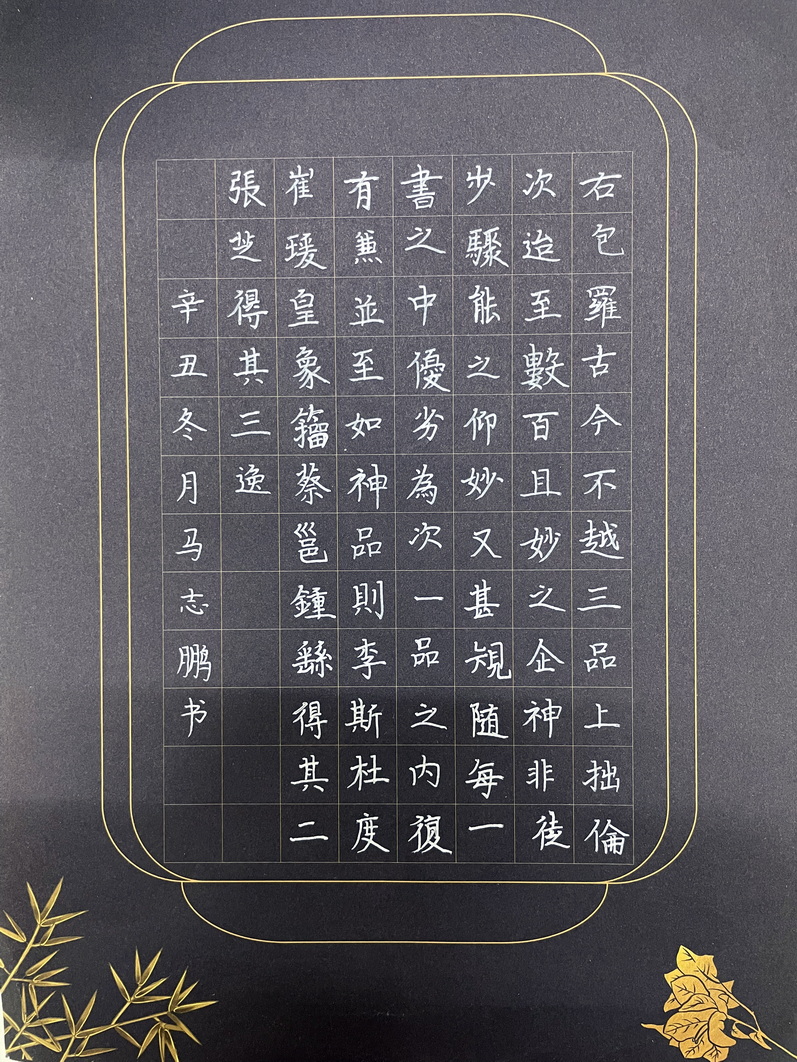 右包羅古今不越三品上拙倫
次迨至數百且妙之企神非徒
步驟能之仰妙又甚規随每一
書之中優劣為次一品之内復
有兼並至如神品則李斯杜度
崔瑗皇象籀蔡邕鍾繇得其二
張芝得其三逸
辛丑冬月马志鹏书